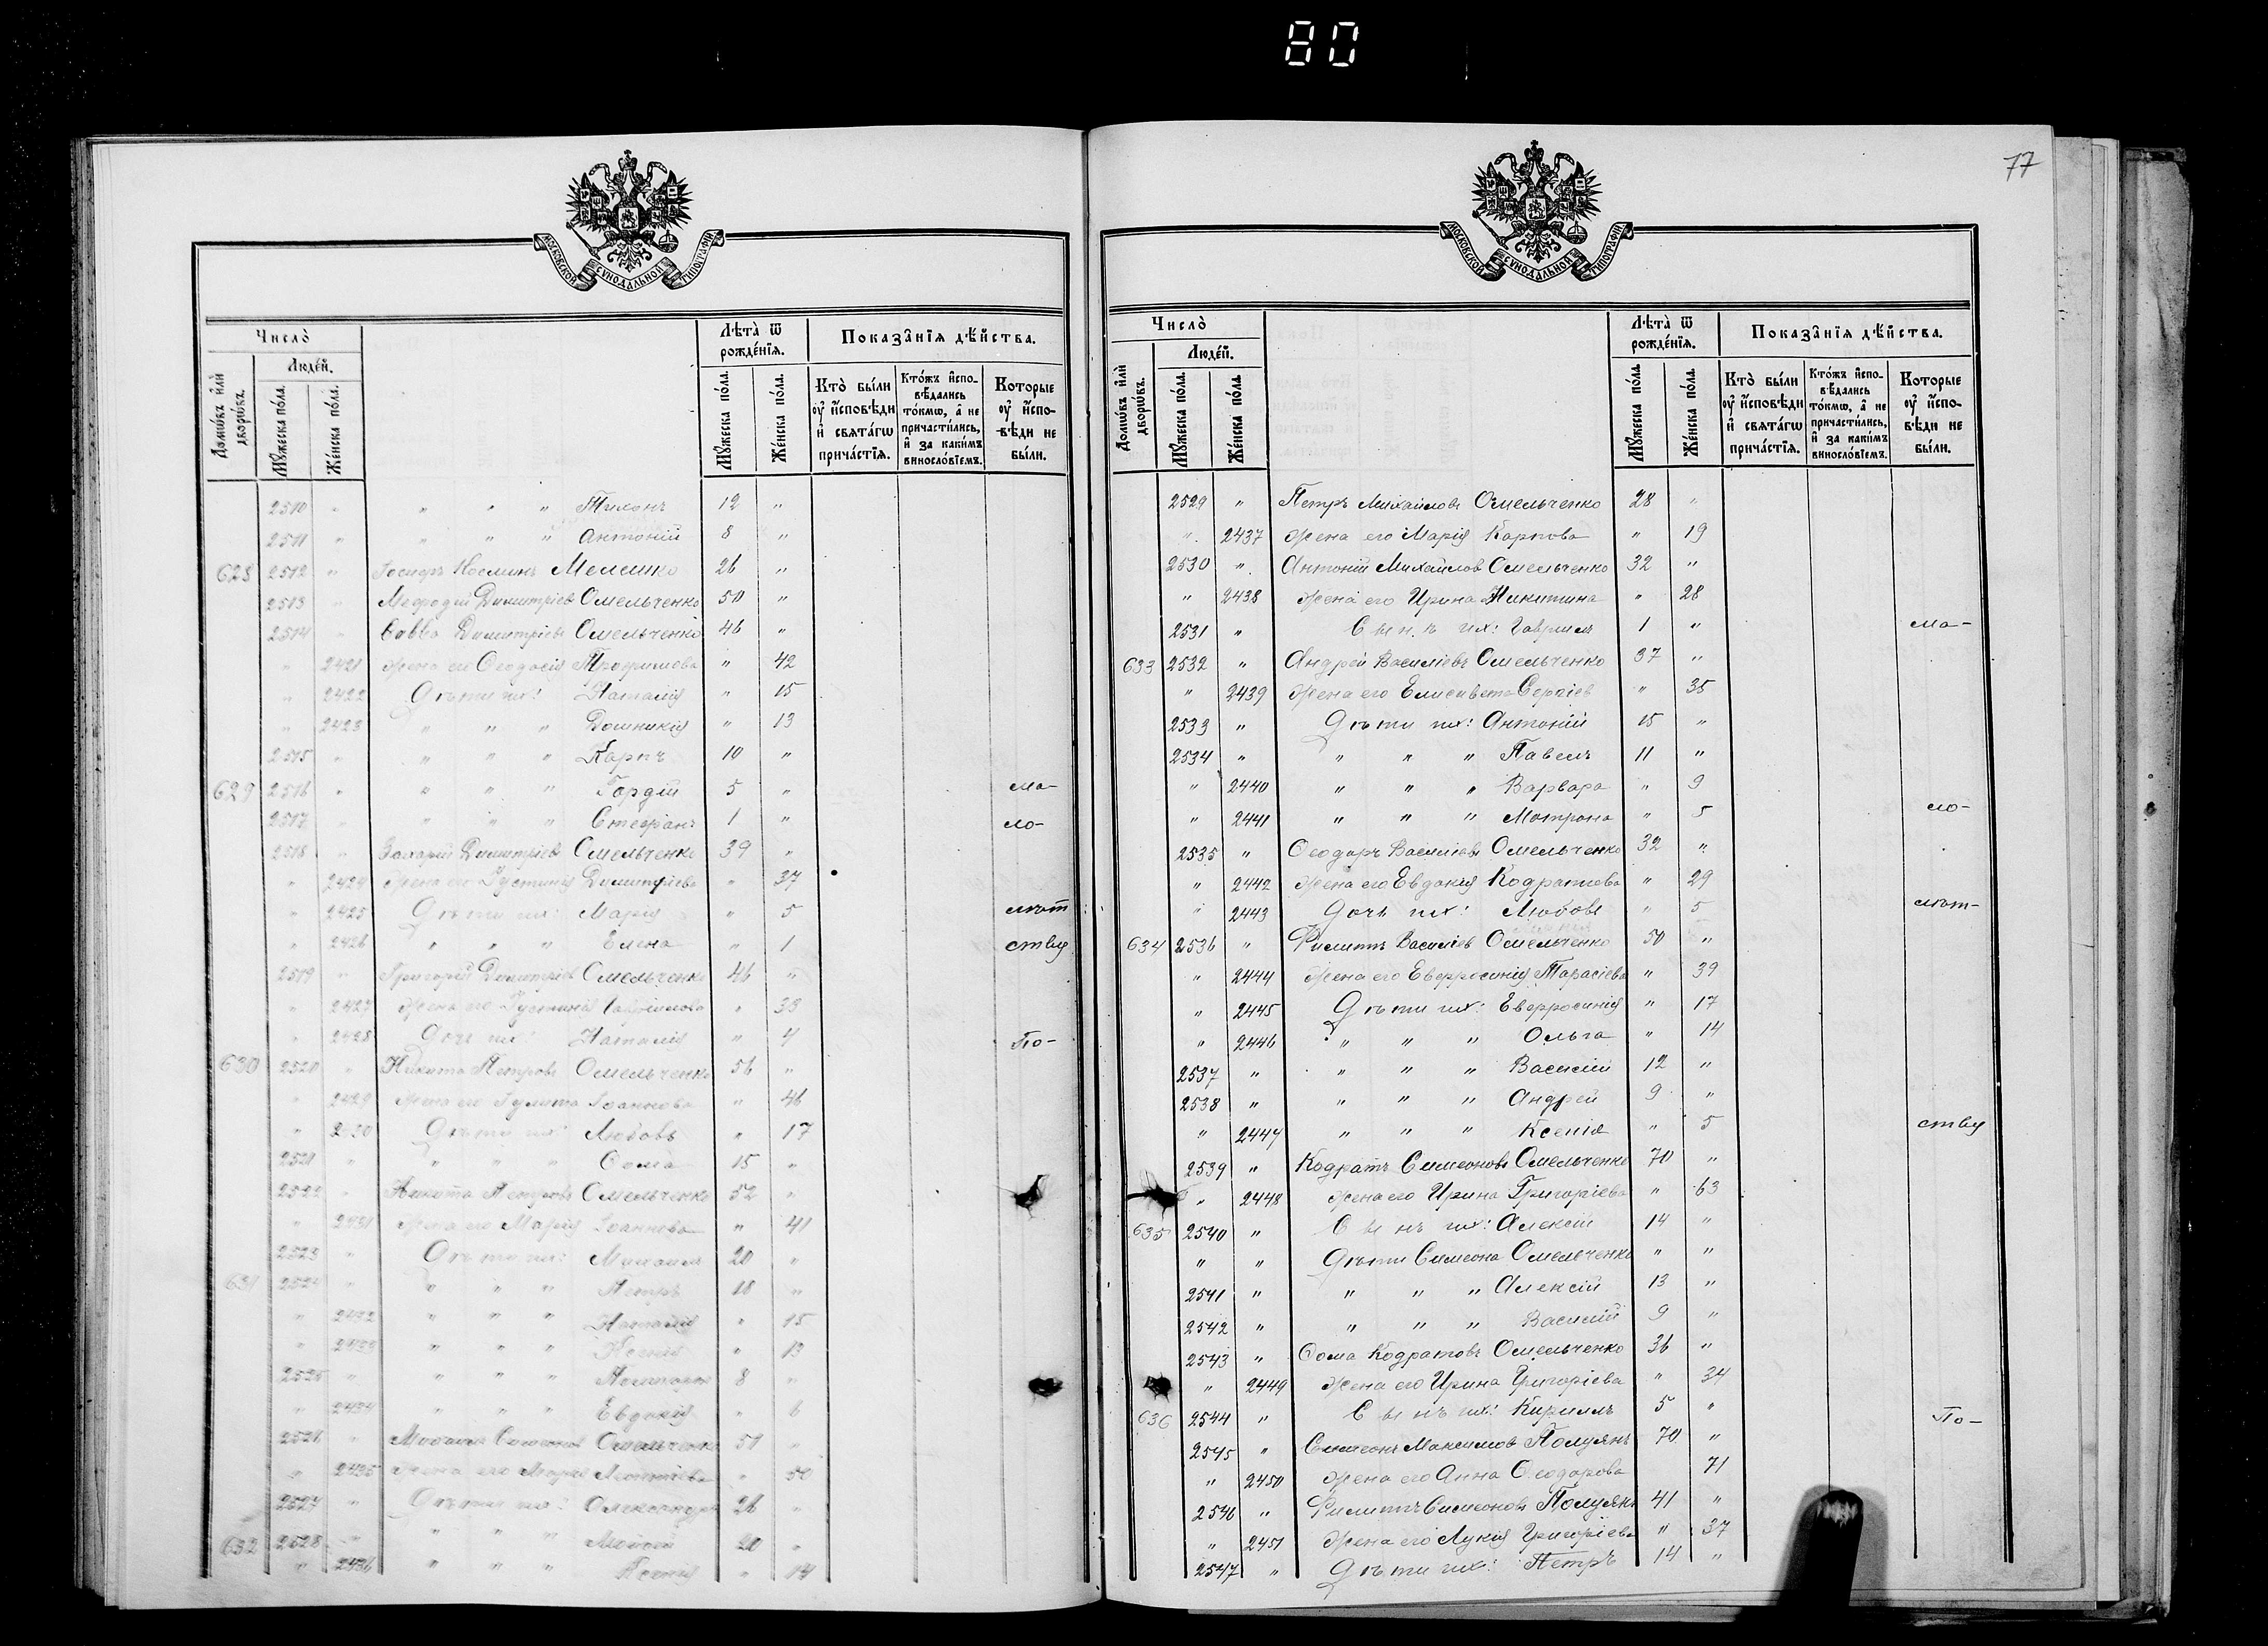 80
МОСКОВСКОЙ СУНОДАЛЬНОЙ ТИПОГРАФІИ
Число̀
Домѡ́въ и҆лѝ дворѡ́въ.
Люде́й.
Мꙋ́жеска по́ла.
Же́нска по́ла.
Лѣ́та ѿ рожде́нїя.
Мꙋ́жеска по́ла.
Же́нска по́ла.
Показа̑нїя дѣ́йства.
Кто̀ бы́ли ᲂу҆ и҆́сповѣди и҆ свята́гѡ прича́стїѧ.
Кто́жъ и҆спо- вѣ́дались то́кмѡ, а҆ не причасти́лись, и҆ за каки́мъ виносло́вїемъ.
Кото́рые ᲂу҆ и҆́спо- вѣди не бы́ли.
2510 " " " " Тихонъ 12 "
2511 " " " " Антоній 8 "
628 2512 " Іосифъ Косминъ Мелешко 26 "
2513 " Мефодій Димитріевъ Омельченко 50 "
2514 " Савва Димитріевъ Омельченко 46 "
" 2421 Жена его Ѳеодосія Трофимова " 42
" 2422 Дѣти их: Наталія " 15
" 2423 " " " Домникія " 13
2515 " " " " Карпъ 10 "
629 2516 " " " " Гордій 5 " ма-
2517 " " " " Стефанъ 1 " ло-
2518 " Захарій Димитріевъ Омельченко 39 "
" 2424 Жена его Іустинія Димитріева " 37
" 2425 Дѣти их: Марія " 5 лѣт
" 2426 " " " Елена " 1 ству
2519 " Григорій Димитріевъ Омельченко 46 "
" 2427 Жена его Іустинія " 33
" 2428 Дочь их: Наталія " 4 По-
630 2520 " Никита Петровъ Омельченко 56 "
" 2429 Жена его Іулита Іоаннова " 46
" 2430 Дѣти их: Любовь " 17
2521 " " " " Ѳома 15 "
2522 " Никита Петровъ Омельченко 52 "
" 2431 Жена его Марія Іоаннова " 41
2523 " Дѣти их: Михаилъ 20 "
631 2524 " " " " Петръ 18 "
" 2432 " " " Наталія " 15
" 2433 " " " Ксенія " 13
2525 " " " " 8 "
" 2434 " " " Евдокія " 6
2526 " Омельченко 51 "
" 2435 Жена его Марія "
2527 " Дѣти их: Александръ 26 "
632 2528 " " " " 20 "
" 2436 " " " Ксенія "
77
МОСКОВСКОЙ СУНОДАЛЬНОЙ ТИПОГРАФІИ
Число̀
Домѡ́въ и҆лѝ дворѡ́въ.
Люде́й.
Мꙋ́жеска по́ла.
Же́нска по́ла.
Лѣ́та ѿ рожде́нїя.
Мꙋ́жеска по́ла.
Же́нска по́ла.
Показа̑нїя дѣ́йства.
Кто̀ бы́ли ᲂу҆ и҆́сповѣди и҆ свята́гѡ прича́стїѧ.
Кто́жъ и҆спо- вѣ́дались то́кмѡ, а҆ не причасти́лись, и҆ за каки́мъ виносло́вїемъ.
Кото́рые ᲂу҆ и҆́спо- вѣди не бы́ли.
2529 " Петръ Михаиловъ Омельченко 28 "
" 2437 Жена его Марія Карпова " 19
2530 " Антоній Михайлов Омельченко 32 "
" 2438 Жена его Ирина Никитина " 28
2531 " Сынъ их: Гавриилъ 1 " ма-
633 2532 " Андрей Василіевъ Омельченко 37 "
" 2439 Жена его Елисавета Сергіев " 35
2533 " Дѣти их: Антоній 15 "
2534 " " " " Павелъ 11 "
" 2440 " " " Варвара " 9
" 2441 " " " Мотрона " 5 ло-
2535 " Ѳеодоръ Василіевъ Омельченко 32 "
" 2442 Жена его Евдокія Кодратова " 29
" 2443 Дочь их: Любовь " 5 лѣт-
634 2536 " Филиппъ Василіев Омельченко 50 "
" 2444 Жена его Евфросинія Тарасіева " 39
" 2445 Дѣти их: Евфросинія " 17
" 2446 " " " Ольга " 14
2537 " " " " Василій 12 "
2538 " " " " Андрей 9 "
" 2447 " " " Ксенія " 5 ству
2539 " Кодратъ Симеоновъ Омельченко 70 "
" 2448 Жена его Ирина Григоріева " 63
635 2540 " Сынъ их: Алексій 14 "
" " Дѣти Симеона Омельченко " "
2541 " " " " Алексій 13 "
2542 " " " " Василій 9 "
2543 " Ѳома Кодратовъ Омельченко 36 "
" 2449 Жена его Ирина Григоріева " 34
636 2544 " Сынъ их: Кириллъ 5 " По-
2545 " Симеонъ Максимов Полуянъ 70 "
" 2450 Жена его Анна Ѳеодорова 71
2546 " Филиппъ Симеоновъ Полуянъ 41 "
" 2451 Жена его Лукія Григоріева " 37
2547 " Дѣти их: Петръ 14 "